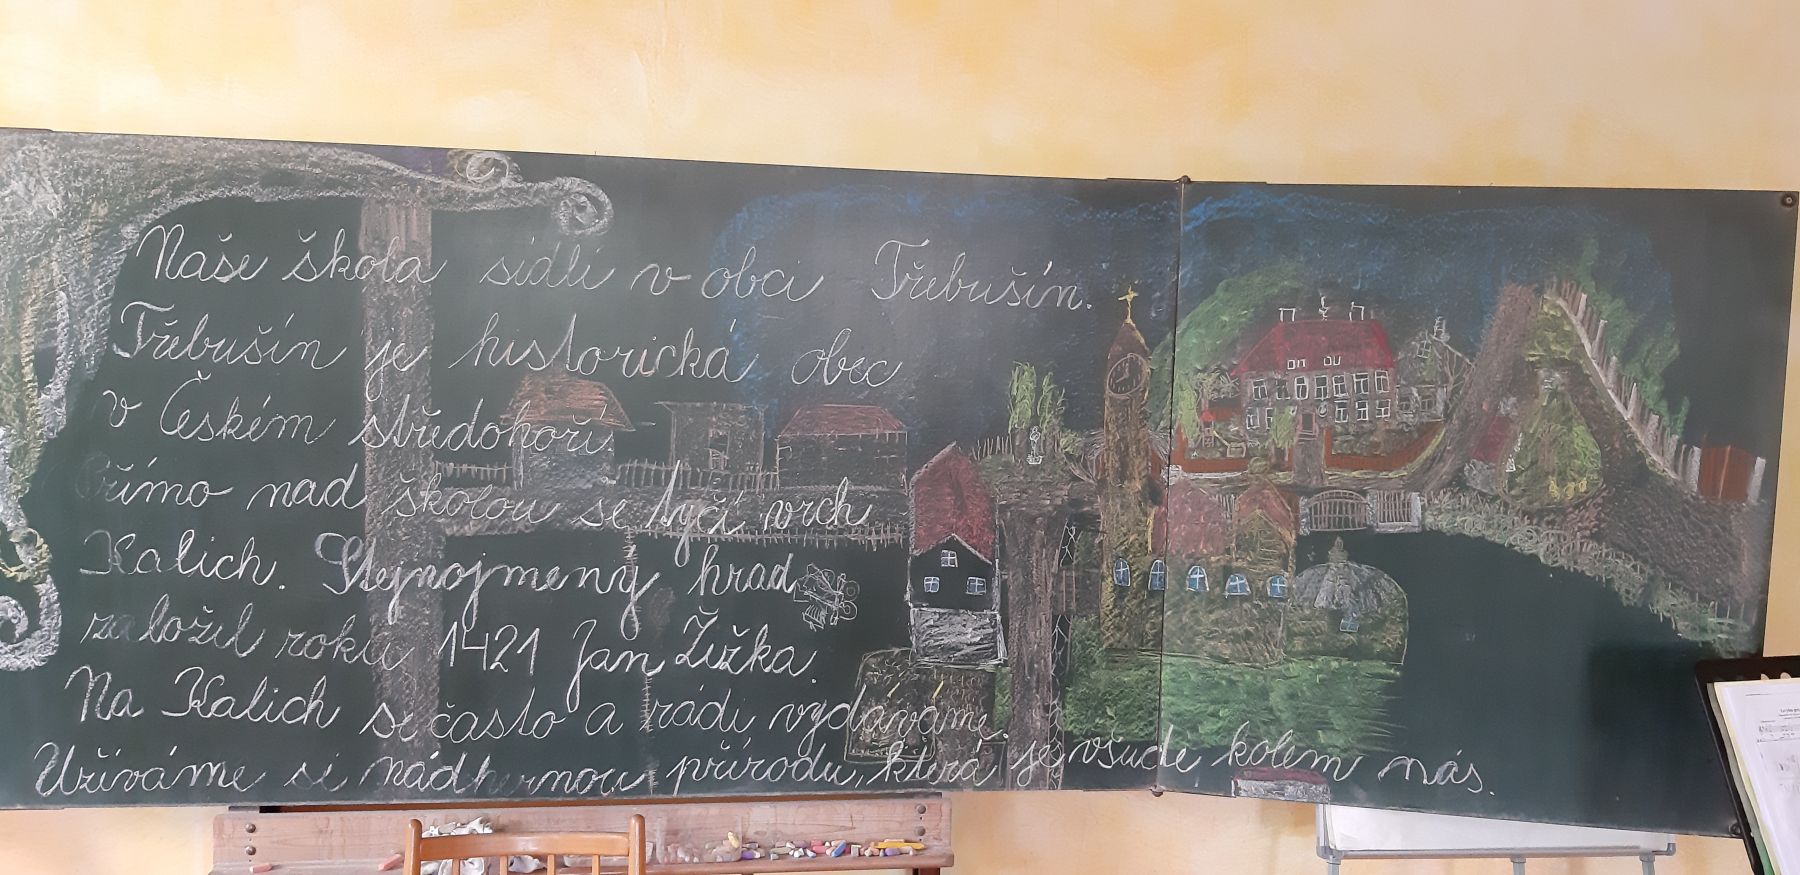 Naše škola sídlí v obci Třebušín.
Třebušín je historická obec
v Českém středohoří.
Přímo nad školou se tyčí vrch
Kalich. Stejnojmenný hrad
založil roku 1421 Jan Žižka.
Na Kalich se často a rádi vydáváme.
Užíváme si nádhernou přírodu, která je všude kolem nás.